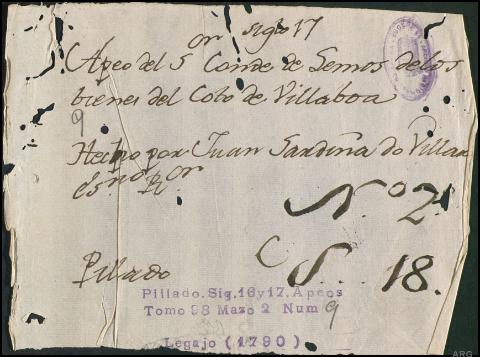 or siglo 17
Apeo del S Conde de Lemos de los
bienes del Coto de Villaboa
9
Hecho por Juan Sardiña do Villar
esno R or
No 2
C S. 18.
Pillado
Pillado. Sig. 16 y 17. Apeos
Tomo 98 Mazo 2 Num 9
Legajo (1790)
ARG